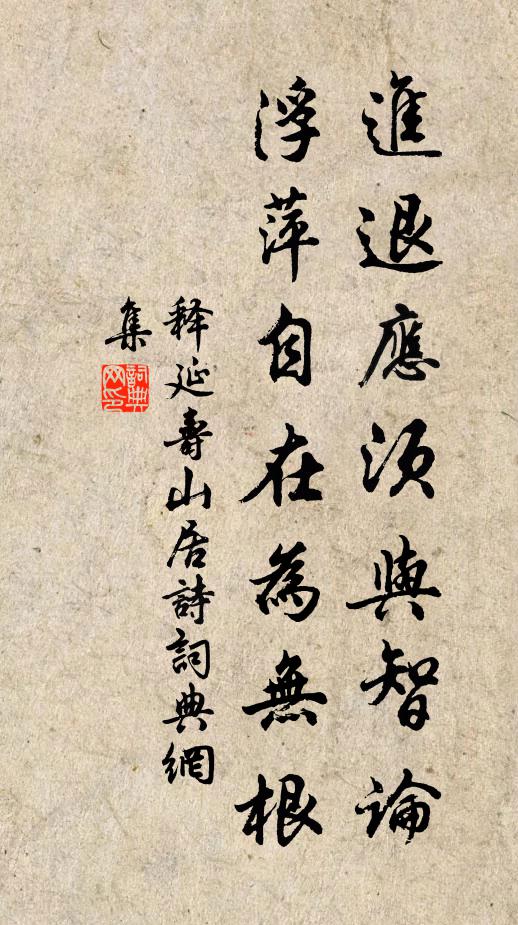 進退應須與智論
浮萍自在為無根
释延壽山居詩詞典網
集
詞典網印